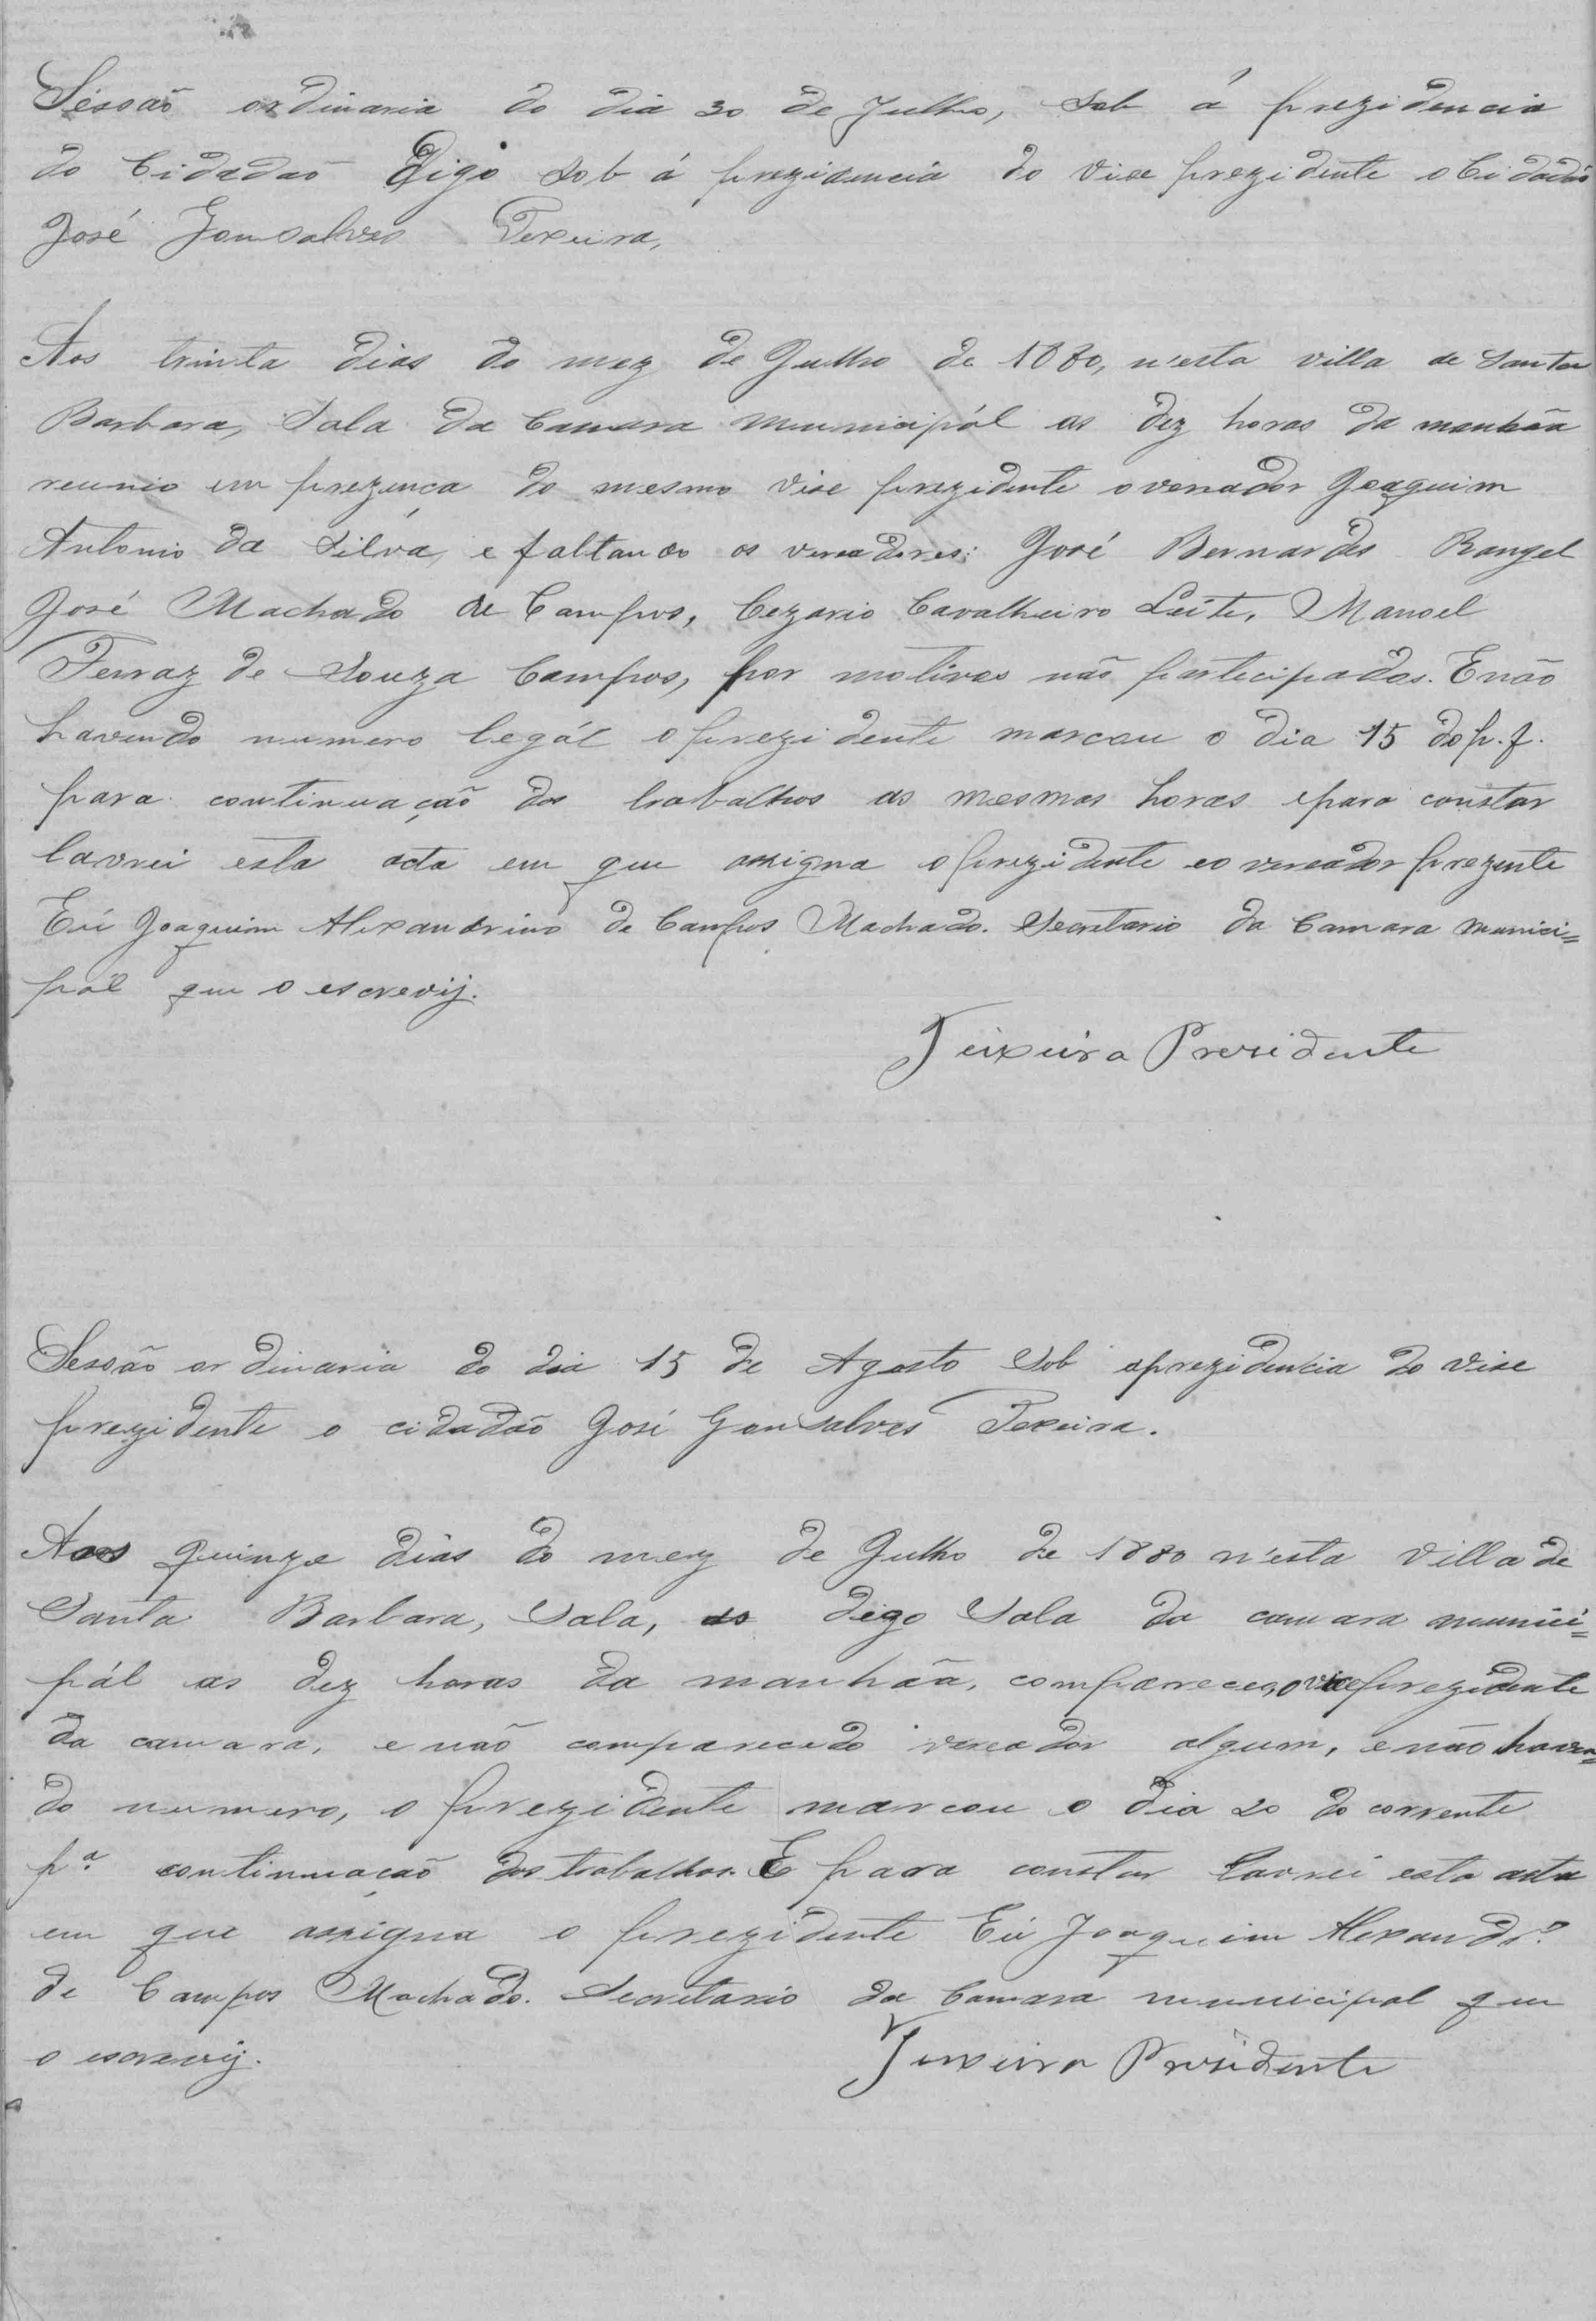 Sessão ordinaria do dia 30 de Julho, sob á prezidencia
do Cidadão Digo sob á prezidencia do vise prezidente o Cidadão
José Gonsalves Texeira,
Aos trinta dias do mez de Julho de 1880, n'esta villa de Santa
Barbara, Sala da Camara municipál as dez horas da manhãa
reunio em prezença do mesmo vise prezidente o vereador Joaquim
Antonio da Silva, e faltando os vereadores: José Bernardes Rangel
José Machado de Campos, Cezario Cavalheiro Leite, Manoel
Ferraz de Souza Campos, por motivos não participados. E não
havendo numero legál o prezidente marcou o dia 15 do p. f.
para continuação dos trabalhos as mesmas horas e para constar
lavrei esta acta em que assigna o prezidente e o vereador prezente
Eu Joaquim Alexandrino de Campos Machado. Secretario da Camara munici=
pál que o escrevij.
Teixeira Presidente
Sessão ordinaria do dia 15 de Agosto sob a prezidencia do vise
prezidente o cidadão José Gonsalves Texeira.
Aos quinze dias do mez de Julho de 1880 n'esta villa de
Santa Barbara, Sala, digo Sala da camara munici=
pál as dez horas da manhãa, compareceo o vice prezidente
da camara, e não comparecedo vereador algum, e não haven=
do numero, o prezidente marcou o dia 20 do corrente
pª. continuação dos trabalhos. E para constar lavrei esta acta
em que assigna o prezidente Eu Joaquim Alexandrº.
de Campos Machado. Secretario da Camara municipal que
o escrevij.
Teixeira Presidente